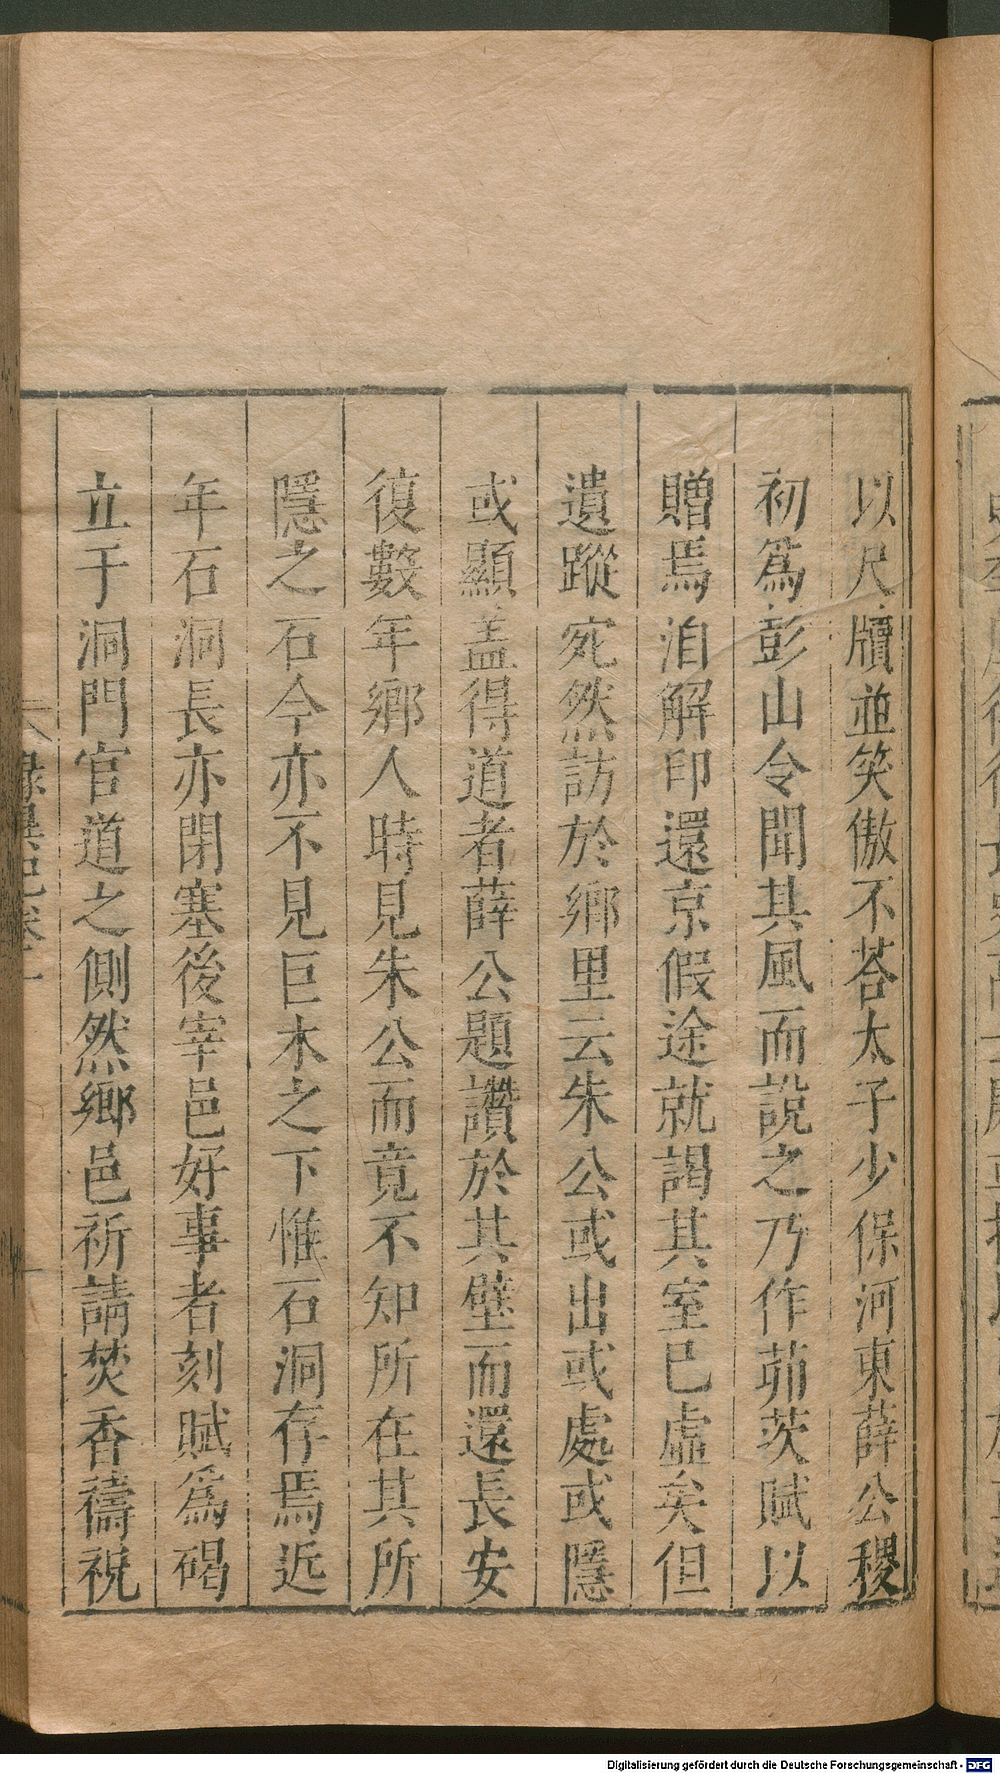 以尺牘並笑傲不荅太子少保河東薛公稷
初爲彭山令聞其風而說之乃作茆茨賦以
贈焉洎解印還京假途就謁其室已虛矣但
遺蹤宛然訪於鄉里云朱公或出或處或隱
或顯盖得道者薛公題讚於其壁而還長安
復數年鄉人時見朱公而竟不知所在其所
隱之石今亦不見巨木之下惟石洞存焉近
年石洞長亦閉塞後宰邑好事者刻賦爲碣
立于洞門官道之側然鄉邑祈請焚香禱祝
錄異記卷
Digitalisierung gefördert durch die Deutsche Forschungsgemeinschaft - DFG